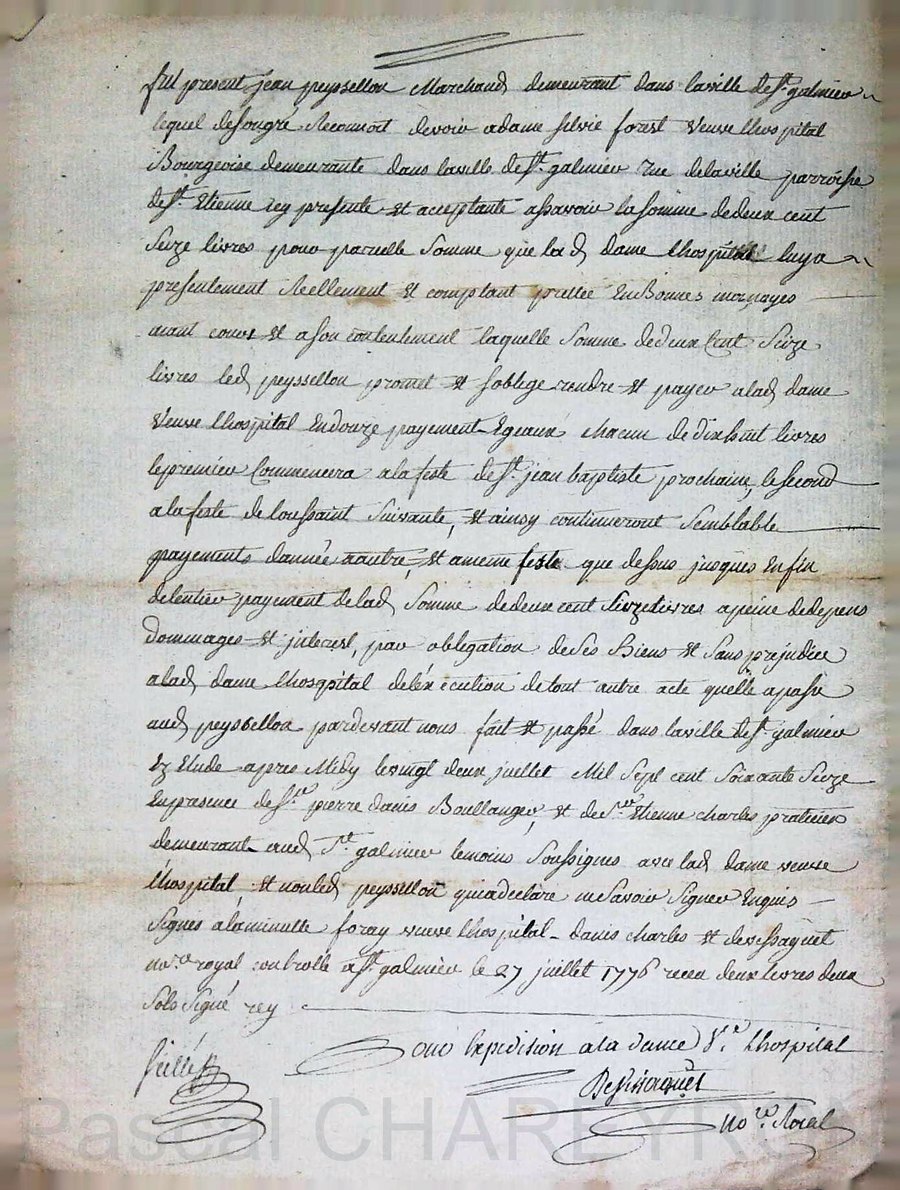 fut present jean peyssellon Marchand demeurant dans laville de St galmier
lequel desongré Reconnoit devoir adame silvie forest veuve lhospital
Bourgeoise demeurante dans laville de St galmier rue delaville parroisse
de St Etienne icy presente et acceptante assavoir la somme dedeux cent
seize livres pour pareille somme que lad dame lhospital luy a
presentement Reellement et comptant prettée EnBonnes monoyes
aiant cours et ason contentement laquelle somme dedeux cent seize
livres led peyssellon promet et soblige rendre et payer alad dame
veuve lhospital Endouze payement Egeaux chacun de dixhuit livres
lepremier Commencera ala feste de St jean baptiste prochaine, le second
ala feste de toussaint suivante, et ainsy continueront semblable
payements dannée aautre, et ameme feste que dessus jusques Enfin
delentier payement delad somme dedeux cent seizelivres apeine dedepens
dommages et interest, par obligation deses Biens et sans prejudice
alad dame lhospital deléxécution detout autre acte quelle apassé
aud peyssellon pardevant nous fait et passé dans laville de St galmier
Ez Etude apres Midy levingt deux juillet Mil sept cent soixante seize
Enpresence de sr pierre danis Boullanger, et de sr Etienne charles praticien
demeurant aud St galmier temoins soussignes avec lad dame veuve
lhospital et nonled peyssellon quiadeclaré nesavoir signer Enquis
signes alaminutte foray veuve lhospital danis charles et devissaguet
nore royal controlle a St galmier le 27 juillet 1776 receu deux livres deux
sols signé rey
pour Expedision ala dame Ve Lhospital
Scellé
Devissaguet
nore Roial
Pascal CHAREYRON